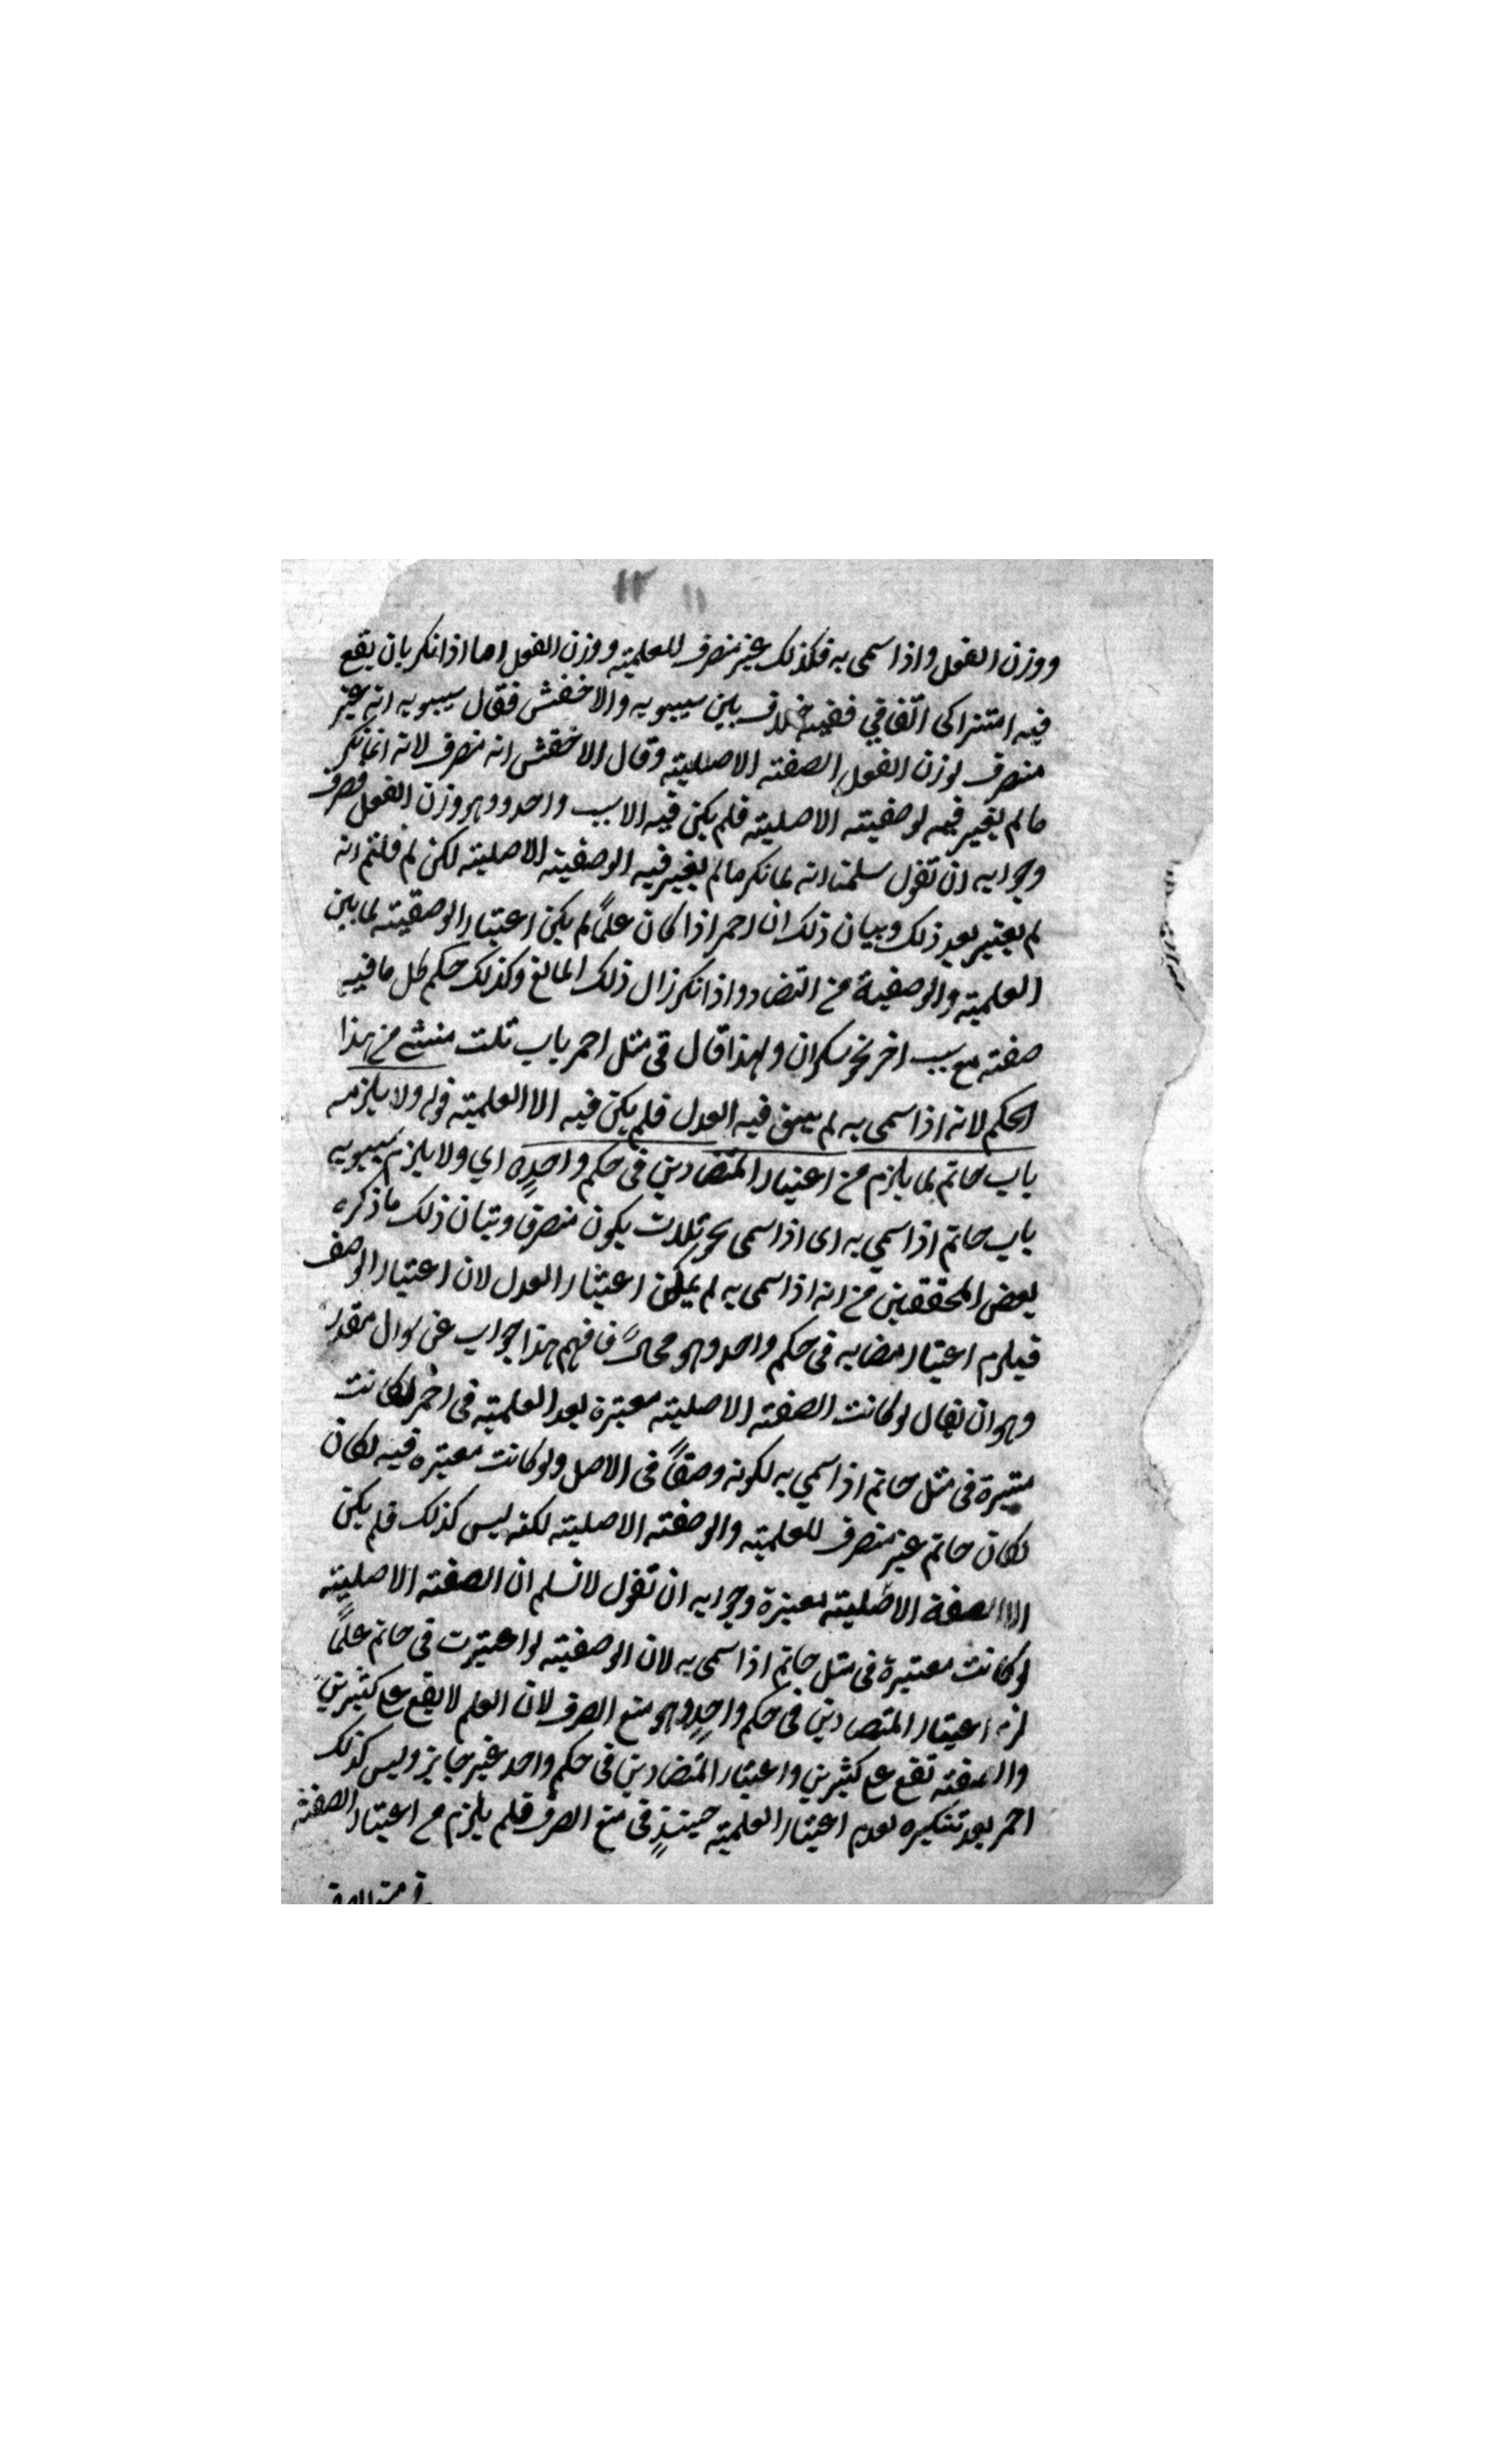 ١٢ ١١
ووزن الفعل واذا سمى به فكذلك غير منصرف للعلمية ووزن الفعل اما اذا نكر بان يقع
فيه اشتراكى اتفاقي ففيه خلاف بين سيبويه والاخفش فقال سيبويه انه غير
منصرف لوزن الفعل الصفته الاصليته وقال الاخفش انه منصرف لانه انما نكر
ما لم يعتبر فيه لوصفيته الاصليته فلم يكن فيه الا سبب واحد وهو وزن الفعل فصرف
وجوابه ان تقول سلمنا انه لما نكر ما لم يعتبر فيه الوصفيته الاصليته لكن لم قلتم انه
لم يعتبر بعد ذلك وبيان ذلك ان احمر اذا كان علمًا لم يكن اعتبار الوصفيته لما بين
العلميته والوصفية من التضاد واذا نكر زال ذلك المانع وكذلك حكم كل ما فيه
صفته مع سبب اخر نحو سكران ولهذا قال فى مثل احمر باب ثلث مستثنى من هذا
الحكم لانه اذا سمى به لم يبق فيه العدل فلم يكن فيه الا العلميته قوله ولا يلزمه
باب حاتم لما يلزم من اعتبار المتضادين فى حكم واحدٍ ه اي ولا يلزم سيبويه
باب حاتم اذا سمي به اى اذا سمى نحو ثلاث يكون منصرفا وبيان ذلك ما ذكره
بعض المحققين من انه اذا سمى به لم يمكن اعتبار العدل لان اعتبار الوصف
فيلزم اعتبار مضابه فى حكم واحد وهو محال فافهم هذا جواب عن سوال مقدر
وهو ان يقال لو كانت الصفته الاصليته معتبرة بعد العلميته فى احمر لكانت
معتبرة فى مثل حاتم اذا سمي به لكونه وصفًا فى الاصل ولو كانت معتبره فيه لكان
لكان حاتم غير منصرف للعلميته والوصفته الاصليته لكنه ليس كذلك فلم يكن
الا الصفة الاصليته معتبرة وجوابه ان تقول لا نسلم ان الصفته الاصليته
لو كانت معتبرة فى مثل حاتم اذا سمى به لان الوصفيته لو اعتبرت فى حاتم علمًا
لزم اعتبار المتضادين فى حكم واحدٍ وهو منع الصرف لان العلم لا يقع على كثيرين
والصفته تقع على كثيرين واعتبار المتضادين فى حكم واحد غير جايز وليس كذلك
احمر بعد تنكيره لعدم اعتبار العلميته حينئذٍ فى منع الصرف فلم يلزم من اعتبار الصفته